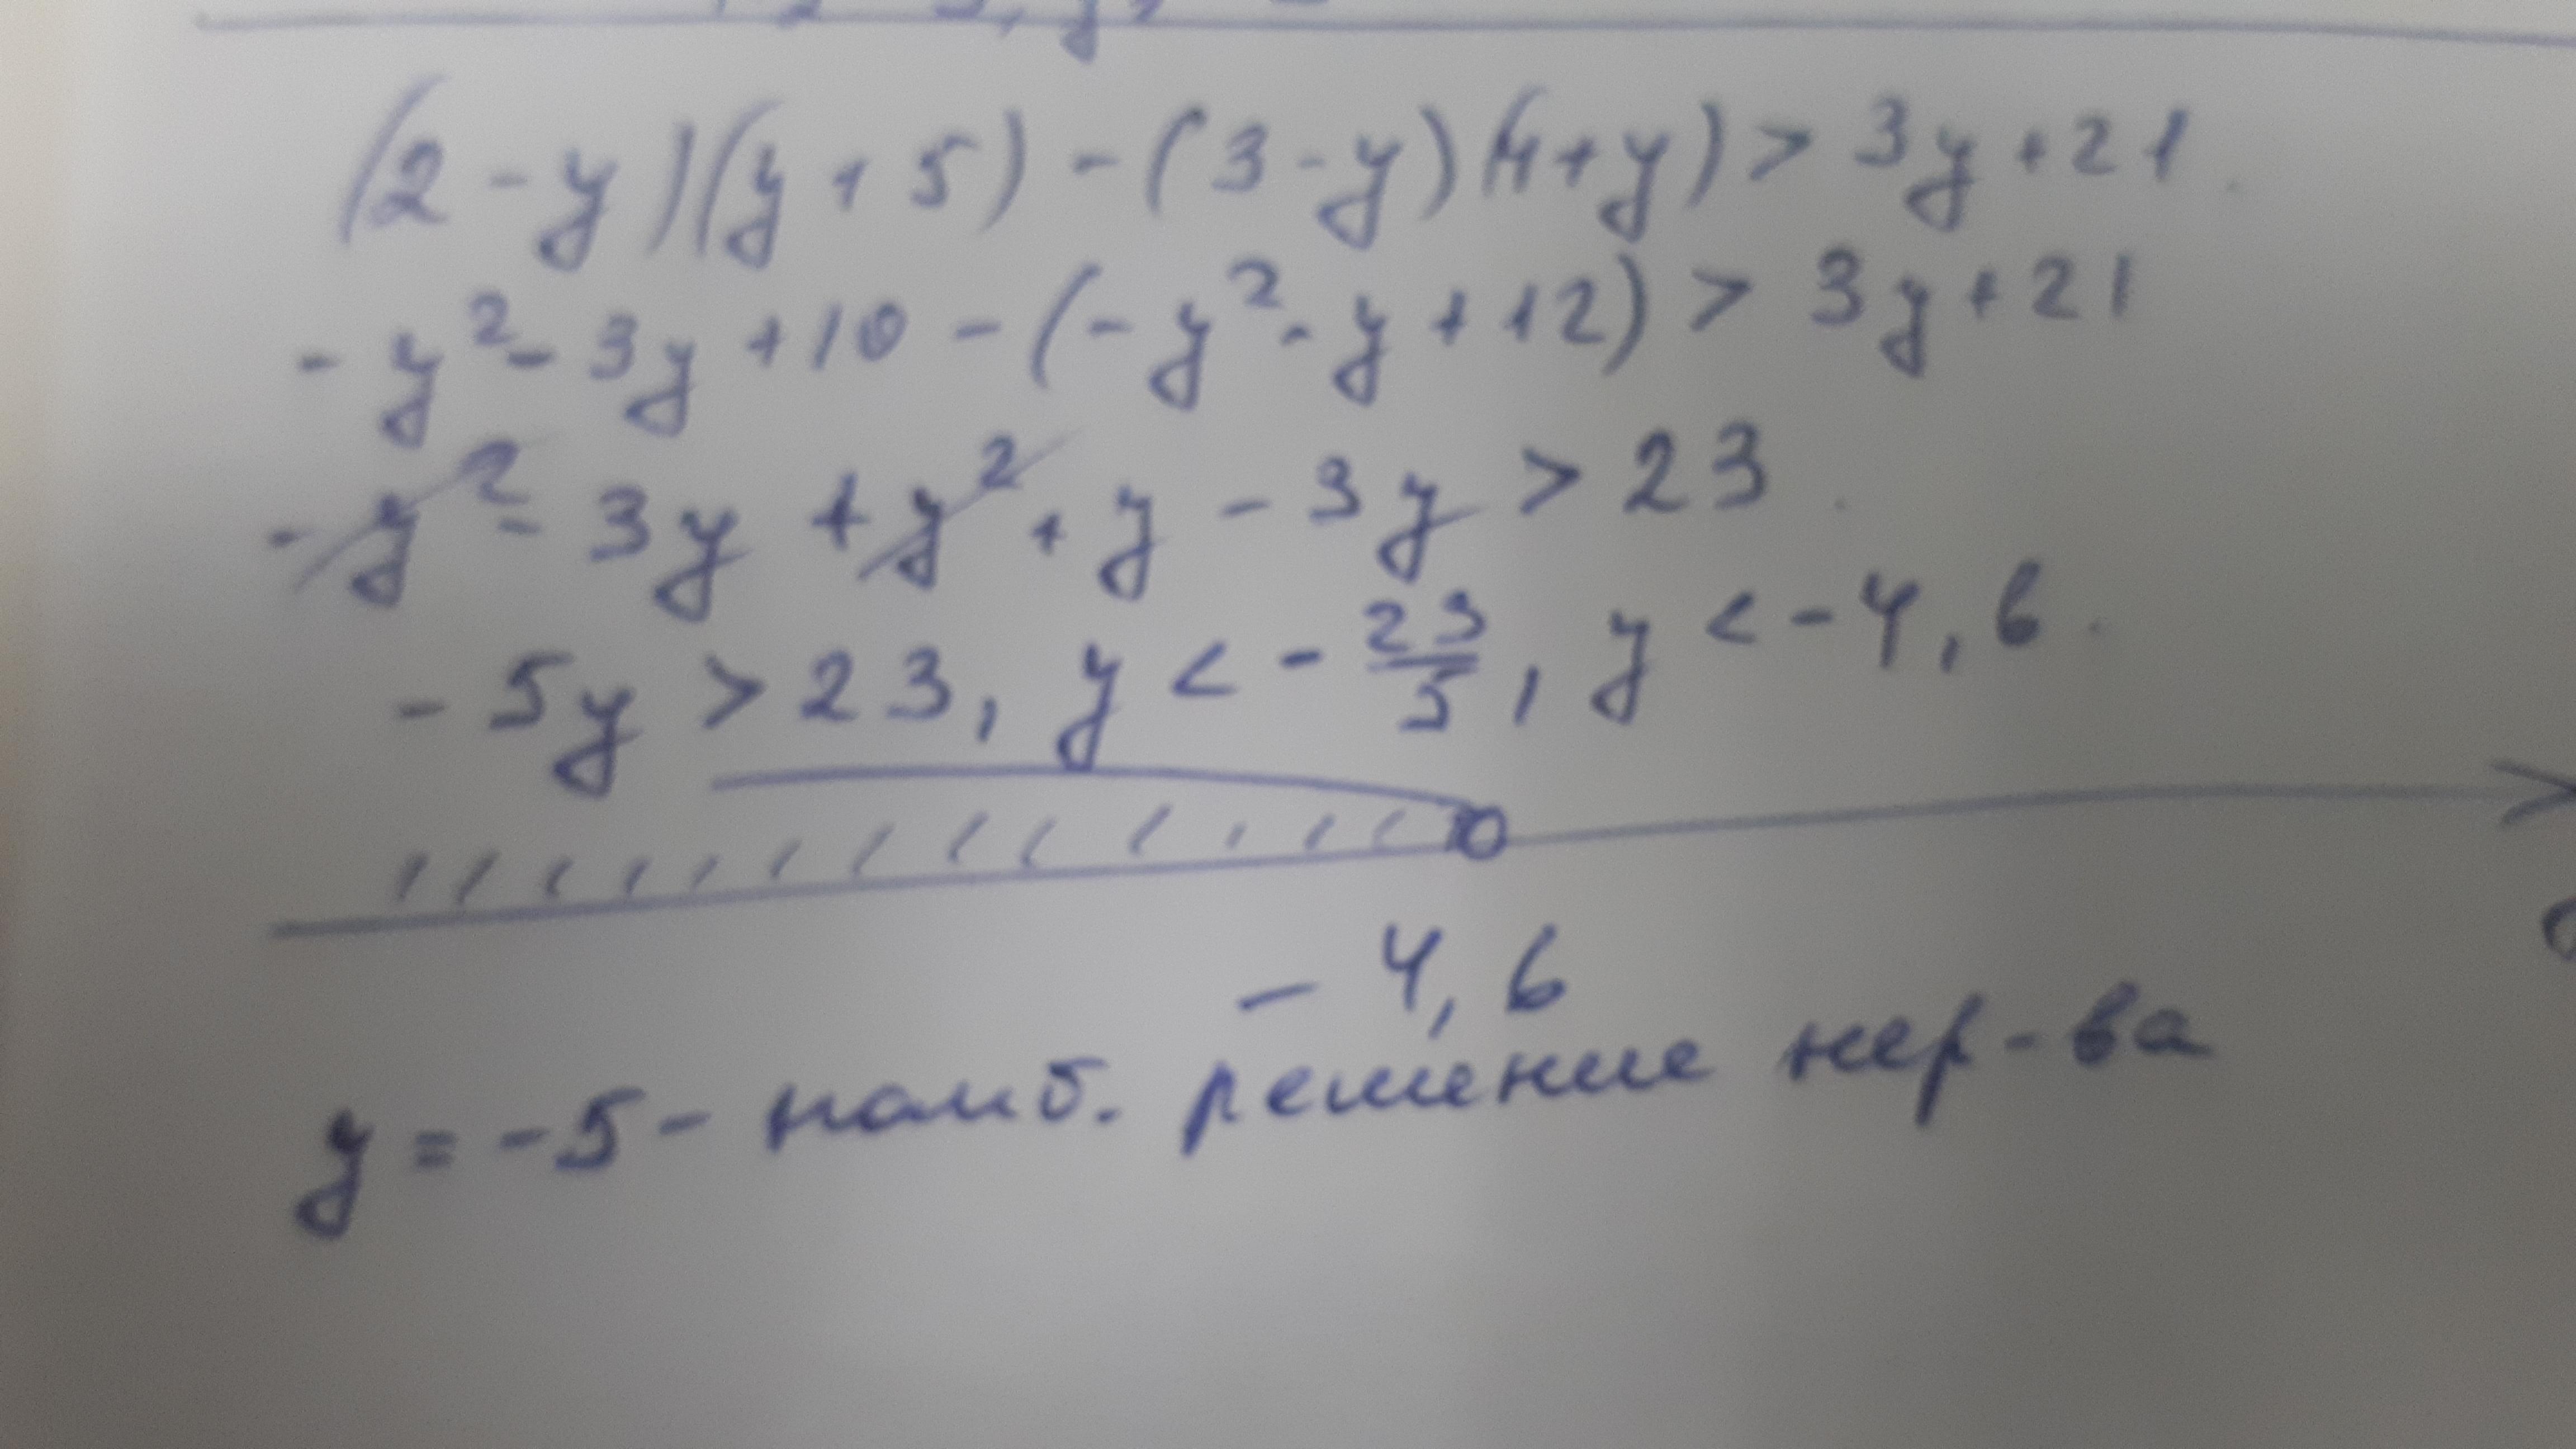 (2-y)(y+5)-(3-y)(4+y)>3y+21.
-y²-3y+10-(-y²-y+12)>3y+21
-y²-3y+y²+y-3y>23.
-5y>23, y<-23/5, y<-4,6.
-4,6
y=-5- наиб. решение нер-ва